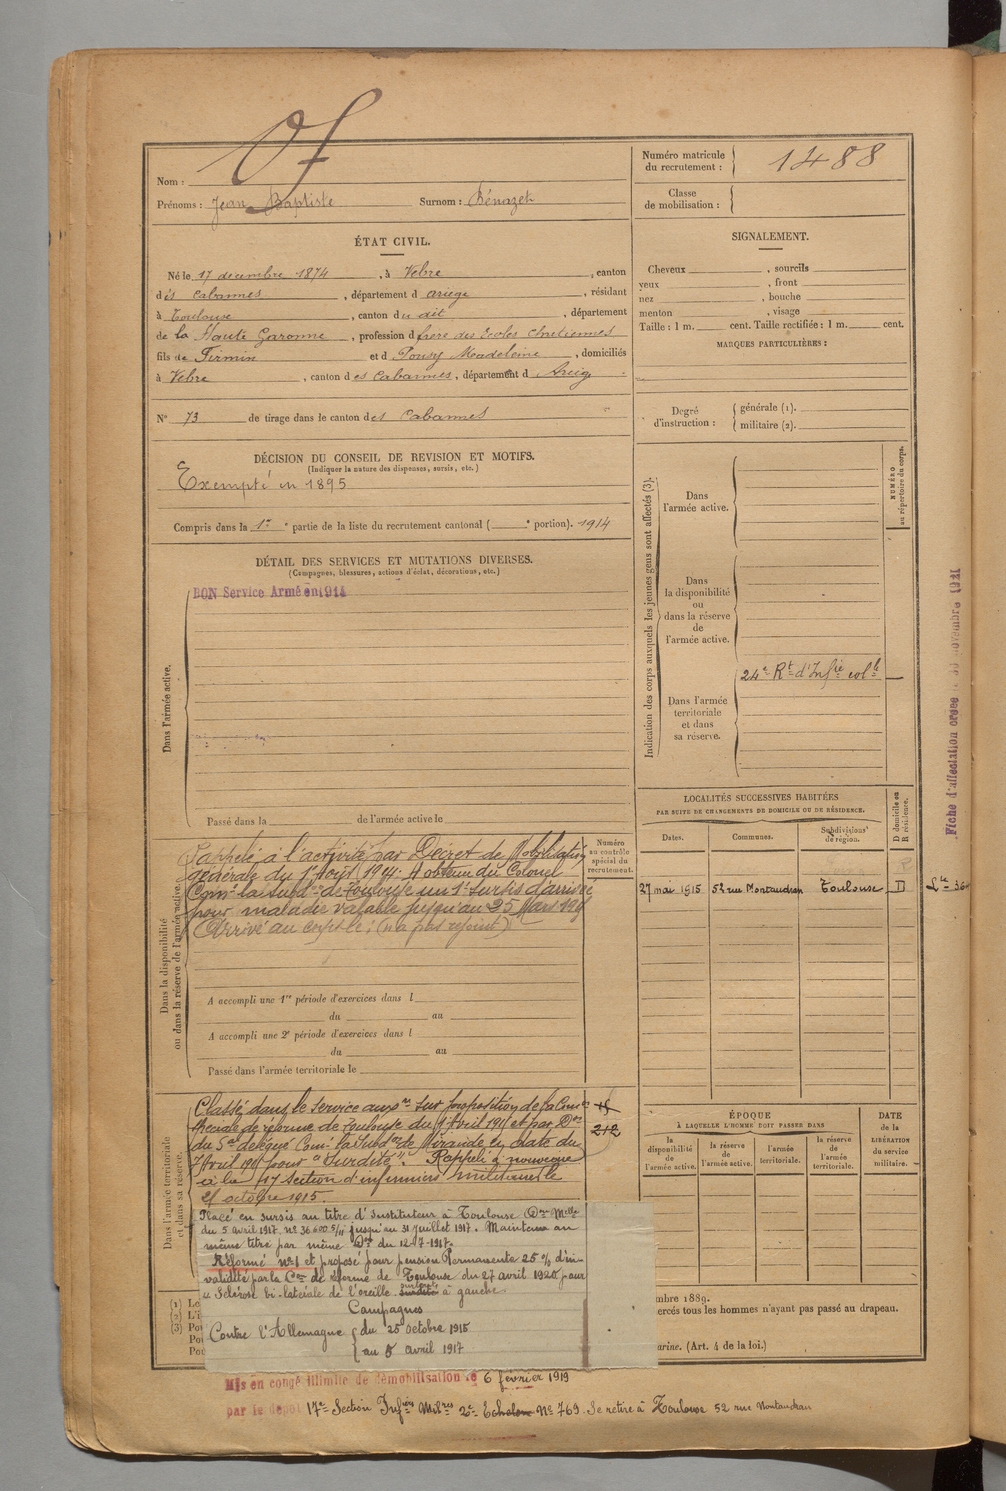 Of
Nom :
Prénoms : Jean Baptiste Surnom : Bénazet
Numéro matricule du recrutement : 1488
Classe de mobilisation :
ÉTAT CIVIL.
Né le 17 décembre 1874, à Vebre, canton
d es Cabannes, département d ariege, résidant
à Toulouse, canton du dit, département
de la Haute Garonne, profession d frère des Ecoles chrétiennes
fils de Firmin et d Pousy Madeleine, domiciliés
à Vebre, canton d es Cabannes, département d Arieg
N° 73 de tirage dans le canton d es Cabannes
SIGNALEMENT.
Cheveux , sourcils
yeux , front
nez , bouche
menton , visage
Taille : 1 m. cent. Taille rectifiée : 1 m. cent.
MARQUES PARTICULIÈRES :
Degré d'instruction : générale (1).
militaire (2).
DÉCISION DU CONSEIL DE REVISION ET MOTIFS.
(Indiquer la nature des dispenses, sursis, etc.)
Exempté en 1895
Compris dans la 1re partie de la liste du recrutement cantonal ( e portion). 1914
DÉTAIL DES SERVICES ET MUTATIONS DIVERSES.
(Campagnes, blessures, actions d'éclat, décorations, etc.)
Dans l'armée active.
BON Service Armé en 1914
Passé dans la de l'armée active le
Indication des corps auxquels les jeunes gens sont affectés (3).
NUMÉRO au répertoire du corps.
Dans l'armée active.
Dans la disponibilité ou dans la réserve de l'armée active.
Dans l'armée territoriale et dans sa réserve.
24e Rt d'Infie colle
Fiche d'affectation créée le 30 novembre 1921
LOCALITÉS SUCCESSIVES HABITÉES
PAR SUITE DE CHANGEMENTS DE DOMICILE OU DE RÉSIDENCE.
Dates. Communes. Subdivisions de région. D domicile ou R résidence.
27 mai 1915 52 rue Montaudran Toulouse D
Dans la disponibilité ou dans la réserve de l'armée active.
Numéro au contrôle spécial du recrutement.
Rappelé à l'activité par Décret de Mobilisation
générale du 1er Août 1914. A obtenu du Colonel
Comt la subdon de Toulouse un 1er sursis d'arrivée
pour maladie valable jusqu'au 25 Mars 191
Arrivé au corps le : (n'a pas rejoint)
A accompli une 1re période d'exercices dans l
du au
A accompli une 2e période d'exercices dans l
du au
Passé dans l'armée territoriale le
Dans l'armée territoriale et dans sa réserve.
Classé dans le service auxre sur proposition de la Comon
Mcale de réforme de Toulouse du Avril 191 et par Don
du Gal délégué Comt la Subd de Mirande en date du
7 Avril 191 pour "Surdité". Rappelé à nouveau
à la 17 Section d'infirmiers militaires le
25 octobre 1915.
212
Placé en sursis au titre d'Instituteur à Toulouse Don Melle
du 5 avril 1917 n° 36600 5/11 jusqu'au 31 juillet 1917. Maintenu au
même titre par même Don du 12-7-1917.
Réformé n° 1 et proposé pour pension Permanente 25 % d'in-
validité par la Con de réforme de Toulouse du 27 avril 1920 pour
« Sclérose bi-latérale de l'oreille à gauche
Campagnes
Contre l'Allemagne du 25 octobre 1915
au 5 avril 1917
ÉPOQUE
À LAQUELLE L'HOMME DOIT PASSER DANS
la disponibilité de l'armée active. la réserve de l'armée active. l'armée territoriale. la réserve de l'armée territoriale.
DATE de la LIBÉRATION du service militaire.
(1) Le
(2) L'i
(3) Pou
Po
Pou
mbre 1889.
ercés tous les hommes n'ayant pas passé au drapeau.
arine. (Art. 4 de la loi.)
Mis en congé illimité de démobilisation le 6 février 1919
par le dépôt 17e Section Infiers Milres 2e Echelon N° 769. Se retire à Toulouse 52 rue Montaudran